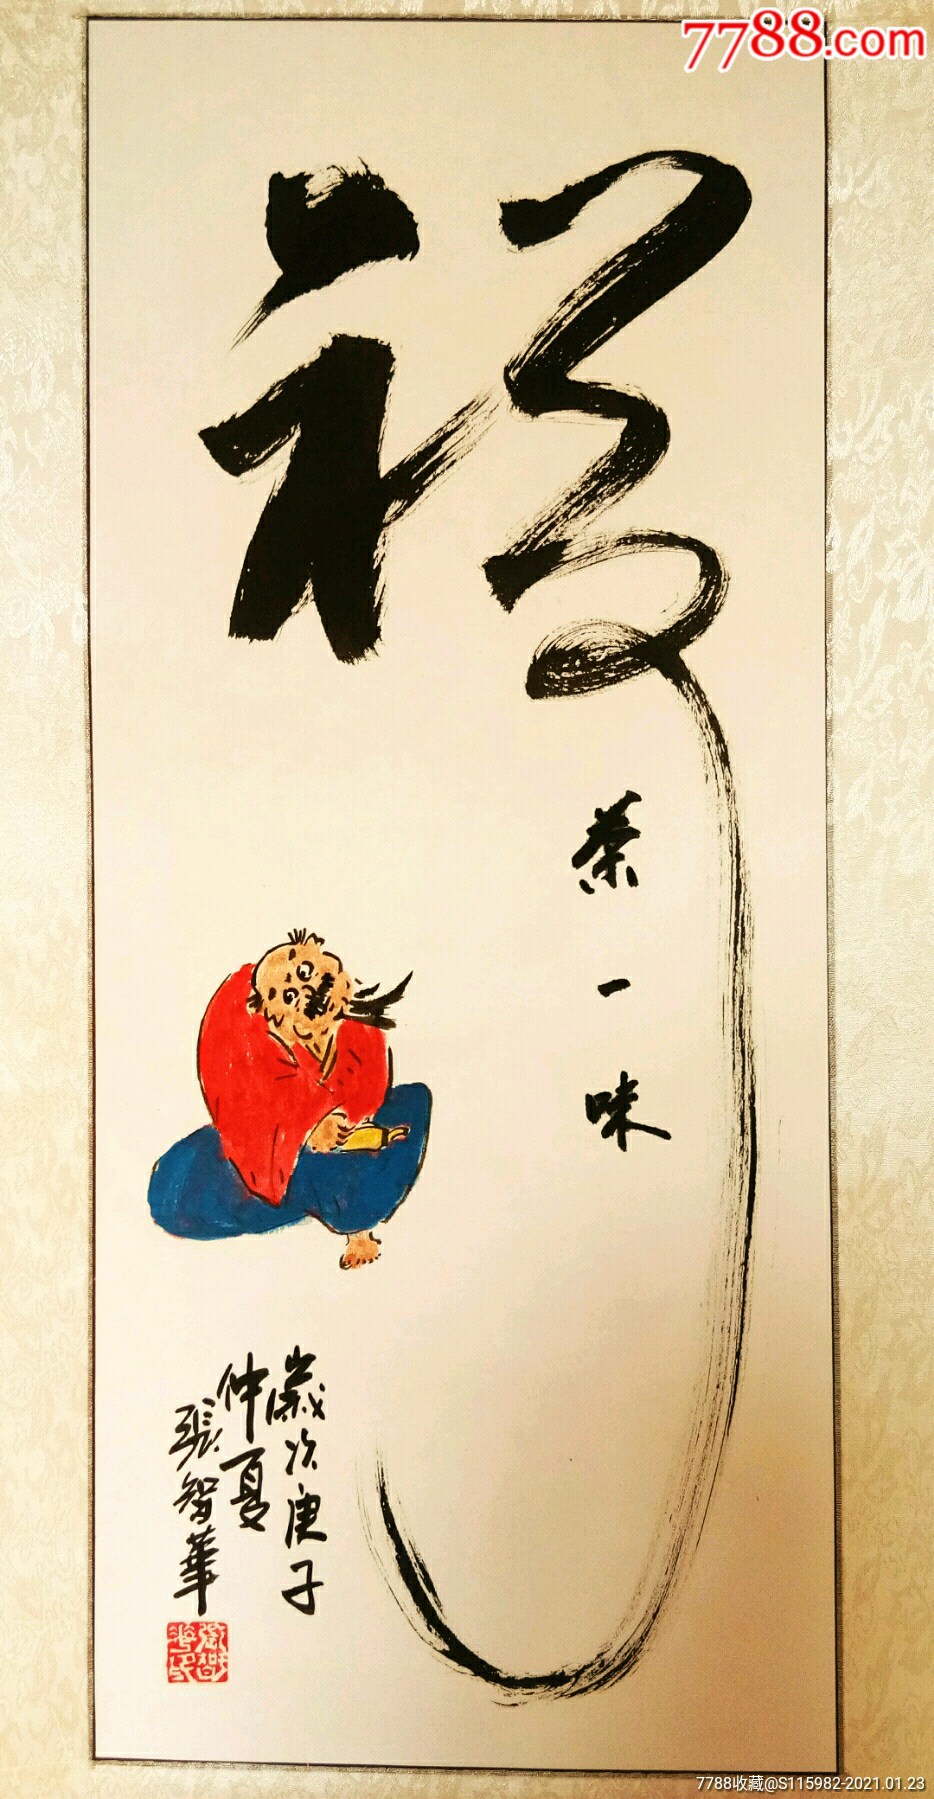 7788.com
禅
茶一味
歲次庚子
仲夏
張智華
7788收藏@S115982-2021.01.23